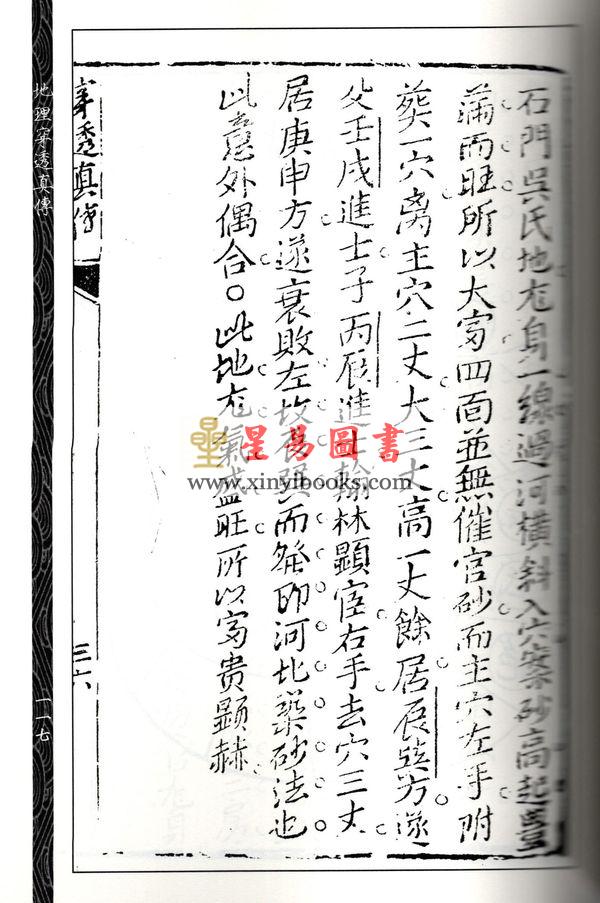 石門吳氏地尨身一線過河橫斜入穴案砂高起豊
滿而旺所以大富四面並無催官砂而主穴左手附
葬一穴离主穴二丈大三丈高一丈餘居辰巽方遂
父壬戌進士子丙辰進士翰林顯宦右手去穴三丈
居庚申方遂衰敗左坟辰巽而發即河北築砂法也
此意外偶合○此地尨氣咸盛旺所以富贵顕赫
穿透真傳
三六
地理穿透真傳
一一七
星易圖書
www.xinyibooks.com